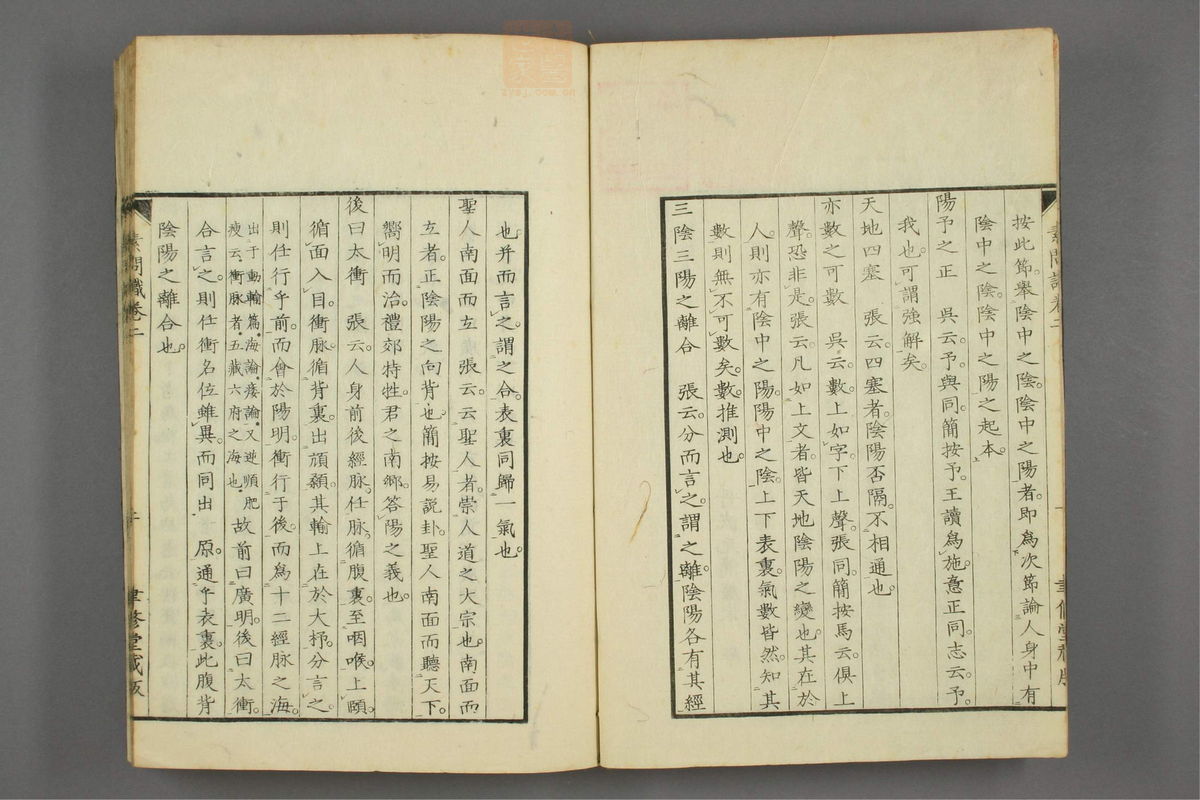 按此節舉陰中之陰。陰中之陽者。即爲次節論人身中有
陰中之陰。陰中之陽之起本。
陽予之正　吳云。予。與同。簡按予。王讀爲施。意正同。志云。予。
我也。可謂強解矣。
天地四塞　張云。四塞者。陰陽否隔。不相通也。
亦數之可數　吳云。數上如字。下上聲。張同。簡按馬云。俱上
聲。恐非是。張云。凡如上文者。皆天地陰陽之變也。其在於
人。則亦有陰中之陽。陽中之陰。上下表裏。氣數皆然。知其
數則無不可數矣。數。推測也。
三陰三陽之離合　張云。分而言之。謂之離。陰陽各有其經
也。并而言之。謂之合。表裏同歸一氣也。
聖人南面而立　張云。云聖人者。崇人道之大宗也。南面而
立者。正陰陽之向背也。簡按易說卦。聖人南面而聽天下。
嚮明而治。禮郊特牲。君之南鄉。答陽之義也。
後曰太衝　張云。人身前後經脈。任脈循腹裏。至咽喉。上頤
循面入目。衝脈循背裏。出頏顙。其輸上在於大杼。分言之
則任行乎前。而會於陽明。衝行于後。而爲十二經脈之海。
出于動輸篇。海論。痿論。又逆順肥
瘦云。衝脈者。五藏六府之海也。
故前曰廣明。後曰太衝。
合言之。則任衝名位雖異。而同出一原。通乎表裏。此腹背
陰陽之離合也。
素問識卷二
二
聿修堂藏版